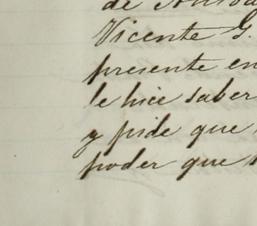 de
Vicente G.
presente en
le hice saber
y pide que
poder que